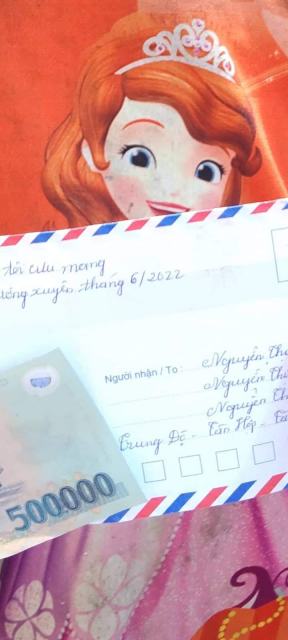 tôi cưu mang
xuyên tháng 6/2022
Người nhận / To :
Nguyễn
Nguyễn
Nguyễn
Trung Độ - Tân Hộp -
500.000